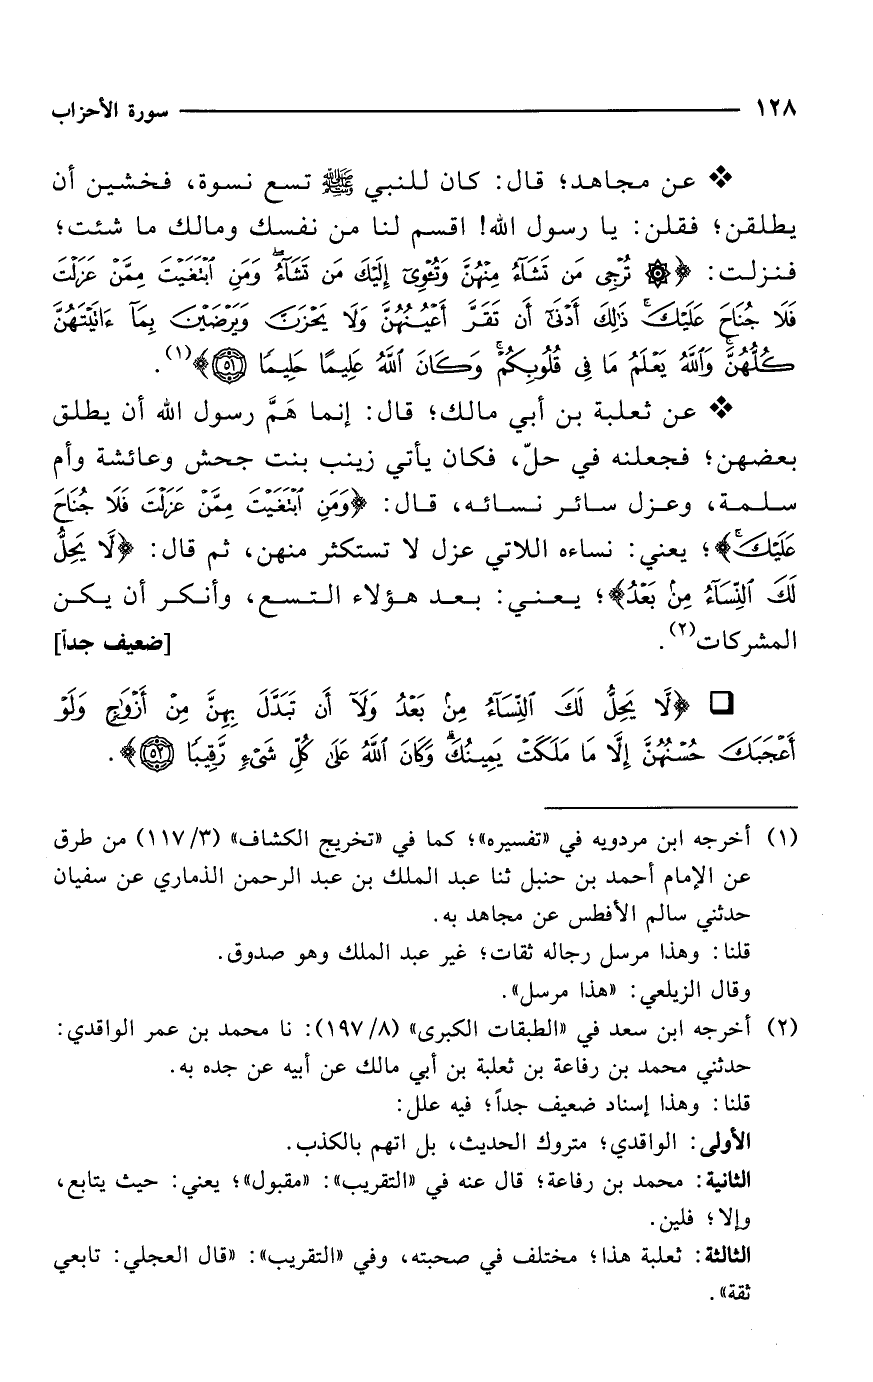 ١٢٨ سورة الأحزاب
❖ عن مجاهد؛ قال: كان للنبي ﷺ تسع نسوة، فخشين أن
يطلقن؛ فقلن: يا رسول الله! اقسم لنا من نفسك ومالك ما شئت؛
فنزلت: ﴿۞ تُرْجِى مَن تَشَآءُ مِنْهُنَّ وَتُـْٔوِىٓ إِلَيْكَ مَن تَشَآءُ ۖ وَمَنِ ٱبْتَغَيْتَ مِمَّنْ عَزَلْتَ
فَلَا جُنَاحَ عَلَيْكَ ۚ ذَٰلِكَ أَدْنَىٰٓ أَن تَقَرَّ أَعْيُنُهُنَّ وَلَا يَحْزَنَّ وَيَرْضَيْنَ بِمَآ ءَاتَيْتَهُنَّ
كُلُّهُنَّ ۚ وَٱللَّهُ يَعْلَمُ مَا فِى قُلُوبِكُمْ ۚ وَكَانَ ٱللَّهُ عَلِيمًا حَلِيمًا ﴿٥١﴾﴾(١).
❖ عن ثعلبة بن أبي مالك؛ قال: إنما هَمَّ رسول الله أن يطلق
بعضهن؛ فجعلنه في حلّ، فكان يأتي زينب بنت جحش وعائشة وأم
سلمة، وعزل سائر نسائه، قال: ﴿وَمَنِ ٱبْتَغَيْتَ مِمَّنْ عَزَلْتَ فَلَا جُنَاحَ
عَلَيْكَ ۚ﴾؛ يعني: نساءه اللاتي عزل لا تستكثر منهن، ثم قال: ﴿لَّا يَحِلُّ
لَكَ ٱلنِّسَآءُ مِنۢ بَعْدُ﴾؛ يعني: بعد هؤلاء التسع، وأنكر أن يكن
المشركات(٢). [ضعيف جداً]
❑ ﴿لَّا يَحِلُّ لَكَ ٱلنِّسَآءُ مِنۢ بَعْدُ وَلَآ أَن تَبَدَّلَ بِهِنَّ مِنْ أَزْوَٰجٍ وَلَوْ
أَعْجَبَكَ حُسْنُهُنَّ إِلَّا مَا مَلَكَتْ يَمِينُكَ ۗ وَكَانَ ٱللَّهُ عَلَىٰ كُلِّ شَىْءٍ رَّقِيبًا ﴿٥٢﴾﴾.
(١) أخرجه ابن مردويه في «تفسيره»؛ كما في «تخريج الكشاف» (٣/ ١١٧) من طرق
عن الإمام أحمد بن حنبل ثنا عبد الملك بن عبد الرحمن الذماري عن سفيان
حدثني سالم الأفطس عن مجاهد به.
قلنا: وهذا مرسل رجاله ثقات؛ غير عبد الملك وهو صدوق.
وقال الزيلعي: «هذا مرسل».
(٢) أخرجه ابن سعد في «الطبقات الكبرى» (٨/ ١٩٧): نا محمد بن عمر الواقدي:
حدثني محمد بن رفاعة بن ثعلبة بن أبي مالك عن أبيه عن جده به.
قلنا: وهذا إسناد ضعيف جداً؛ فيه علل:
الأولى: الواقدي؛ متروك الحديث، بل اتهم بالكذب.
الثانية: محمد بن رفاعة؛ قال عنه في «التقريب»: «مقبول»؛ يعني: حيث يتابع،
وإلا؛ فلين.
الثالثة: ثعلبة هذا؛ مختلف في صحبته، وفي «التقريب»: «قال العجلي: تابعي
ثقة».